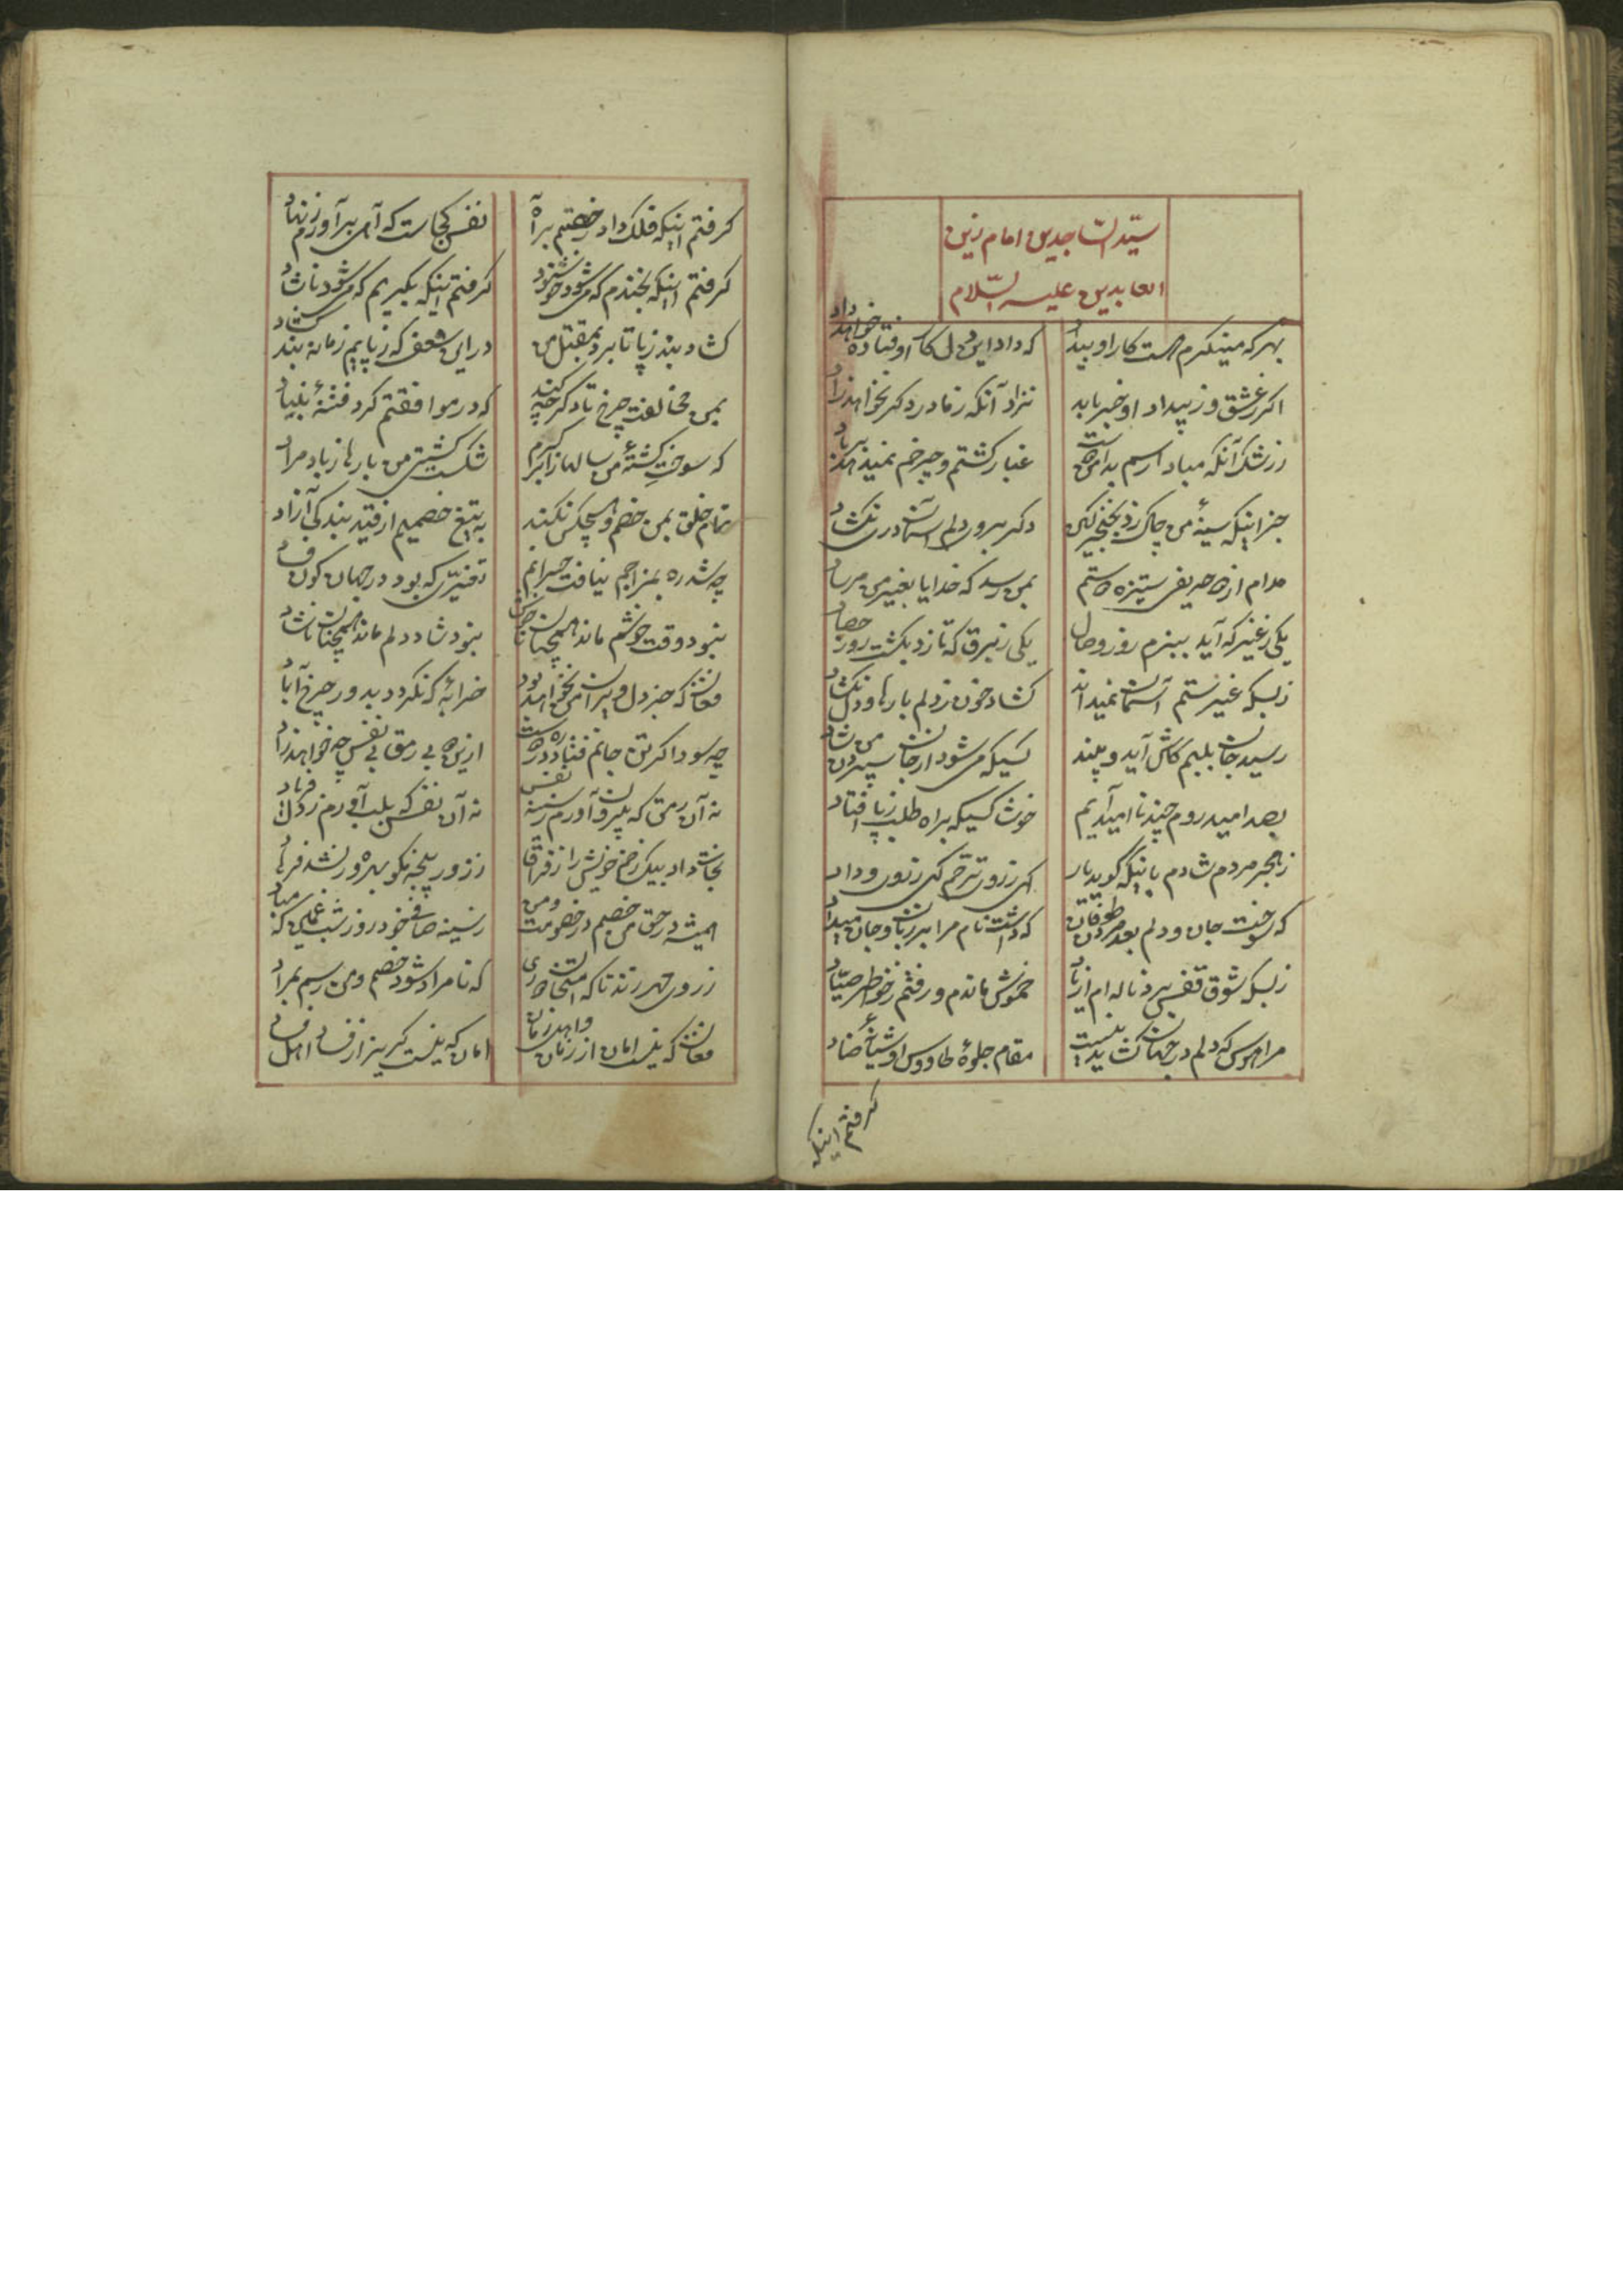 سیّد السّاجدین امام زین
العابدین علیه السّلام
بهر که مینکرم هست کار او بیداد
که داد این دل کار اوفتاده خواهد داد
اکر ز عشق وز بیداد او خبر یابد
نزاد آنکه ز مادر دکر نخواهد زاد
ز رشک آنکه مباد ا رسم بدامن
غبار کشتم و چرخم نمیدهد بر باد
جز اینکه سینهٔ من چاک زد بخنجر کین
دکر بروی دلم آسمان دری نکشاد
مدام ازین حریفی ستیزه ستم
بمن رسد که خدایا بغیر من مرساد
یکی ز غیر که آید ببزم روز وصال
یکی ز برق که تازد بکشت روز حصاد
ز بسکه غیر ستم آسمان نمیداند
کشاد خون ز دلم بارها و دل نکشاد
رسید جان بلبم کاش آید و بیند
کسیکه میشود از جان سپردن من شاد
بصد امید روم چند نا امید آیم
خوش کسیکه براه طلب ز پا افتاد
ز هجر مردم شادم باینکه گوید یار
که از روی ترحم که از روی وداد
که سوخت جان و دلم بعد مردن
که داشت نام مرا بر زبان و جان میداد
ز بسکه شوق قفس برد ناله ام از یاد
خموش ماندم و رفتم ز خواطر صیّاد
مرا هوس که دلم در جهان
مقام جلوهٔ طاووس
کرفتم اینکه
کرفتم اینکه فلک داد رخصتم بر آه
نفس کجاست که آهی بر آورم ز نهاد
کرفتم اینکه بخندم که میشود خوشنود
کرفتم اینکه بکریم که میشود ناشاد
کشاد بند ز پا تا برد بمقتل من
در این شعف که ز پایم زمانه بند کشاد
بمن مخالفت چرخ تا دکر چه کند
که در موافقتم کرد فتنهٔ بنیاد
که سوخت کشتهٔ من سالها ز آب کرم
شکست کشتی من بارها ز باد مراد
تمام خلق بمن خصم و هیچکس نکند
به تیغ خصمیم از قید بندکی آزاد
چه شد ره بمزاجم نیافت حیرانم
تغیّری که بود در جهان کون و فساد
نبود وقت خوشم ماند همچنان ناخوش
نبود شاد دلم ماند همچنان ناشاد
فغان که جز دل ویران من نخواهد بود
خرابهٔ که نکردد بدور چرخ آباد
چه سود اکر تن جانم فتاده در ره
ازین بی رمق بی نفس چه خواهد زاد
نه آن رمق که برون آورم ز سینه نفس
نه آن نفس که بلب آورم ز دل فریاد
نجات داد بیک زخم خویش را ز فراق
ز زور پنجه نکو بهره ور نشد فرهاد
همیشه در حق من خصم در خصومت و من
ز سینه صافی خود روز شب که مباد
ز روی مهر زند تا که امتحان
که نامراد شود خصم و من رسم بمراد
فغان که نیست امان از زمان و اهل زمان
امان که نیست کریز از فساد اهل فساد